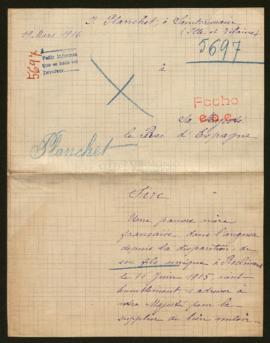 J. Planchet, à
(Ille et Vilaine)
19 Mars 1916
5697
5697
Pedir informes
que se hará con
à
Fecho
Sa Majesté
le Roi d'Espagne
Planchet
Sire
Une pauvre mère
française dans l'angoisse
depuis la disparition de
son fils unique à
le 11 Juin 1915 vient
humblement s'adresser à
votre Majesté pour la
supplier de bien vouloir